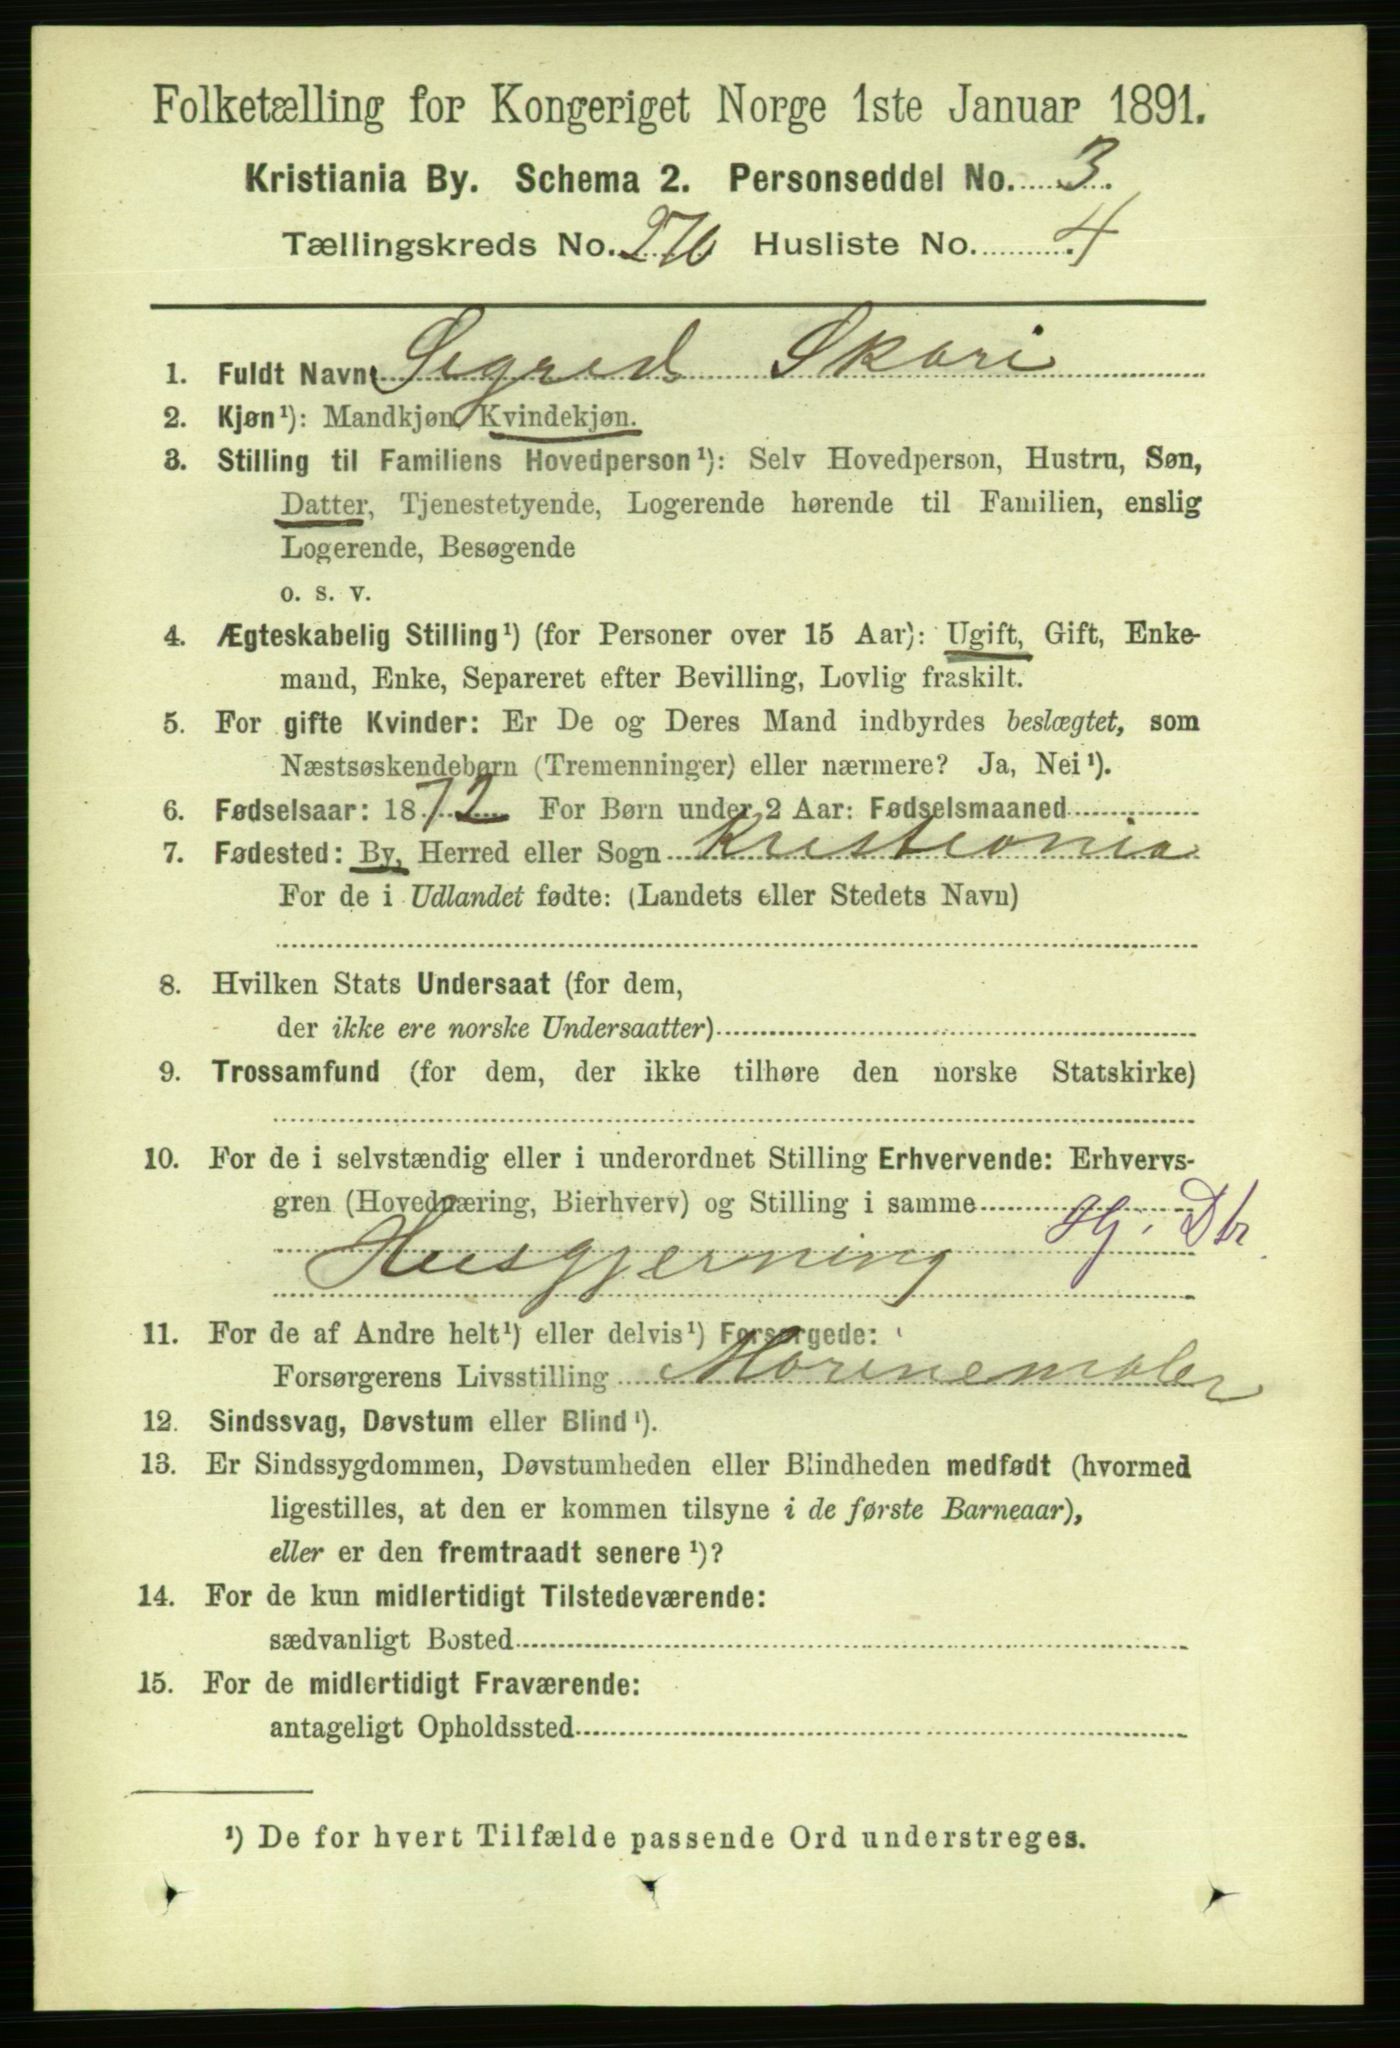 Folketælling for Kongeriget Norge 1ste Januar 1891.
Kristiania By. Schema 2. Personseddel No. 3.
Tællingskreds No. 276 Husliste No. 4
1. Fuldt Navn: Sigrid Skari
2. Kjøn¹): Mandkjøn, Kvindekjøn.
3. Stilling til Familiens Hovedperson¹): Selv Hovedperson, Hustru, Søn,
Datter, Tjenestetyende, Logerende hørende til Familien, enslig
Logerende, Besøgende
o. s. v.
4. Ægteskabelig Stilling¹) (for Personer over 15 Aar): Ugift, Gift, Enke-
mand, Enke, Separeret efter Bevilling, Lovlig fraskilt.
5. For gifte Kvinder: Er De og Deres Mand indbyrdes beslægtet, som
Næstsøskendebørn (Tremenninger) eller nærmere? Ja, Nei¹).
6. Fødselsaar: 1872 For Børn under 2 Aar: Fødselsmaaned
7. Fødested: By, Herred eller Sogn Kristiania
For de i Udlandet fødte: (Landets eller Stedets Navn)
8. Hvilken Stats Undersaat (for dem,
der ikke ere norske Undersaatter)
9. Trossamfund (for dem, der ikke tilhøre den norske Statskirke)
10. For de i selvstændig eller i underordnet Stilling Erhvervende: Erhvervs-
gren (Hovednæring, Bierhverv) og Stilling i samme
Hj. Dtr.
Husgjerning
11. For de af Andre helt¹) eller delvis¹) Forsørgede:
Forsørgerens Livsstilling Marinemaler
12. Sindssvag, Døvstum eller Blind¹).
13. Er Sindssygdommen, Døvstumheden eller Blindheden medfødt (hvormed
ligestilles, at den er kommen tilsyne i de første Barneaar),
eller er den fremtraadt senere¹)?
14. For de kun midlertidigt Tilstedeværende:
sædvanligt Bosted
15. For de midlertidigt Fraværende:
antageligt Opholdssted
¹) De for hvert Tilfælde passende Ord understreges.